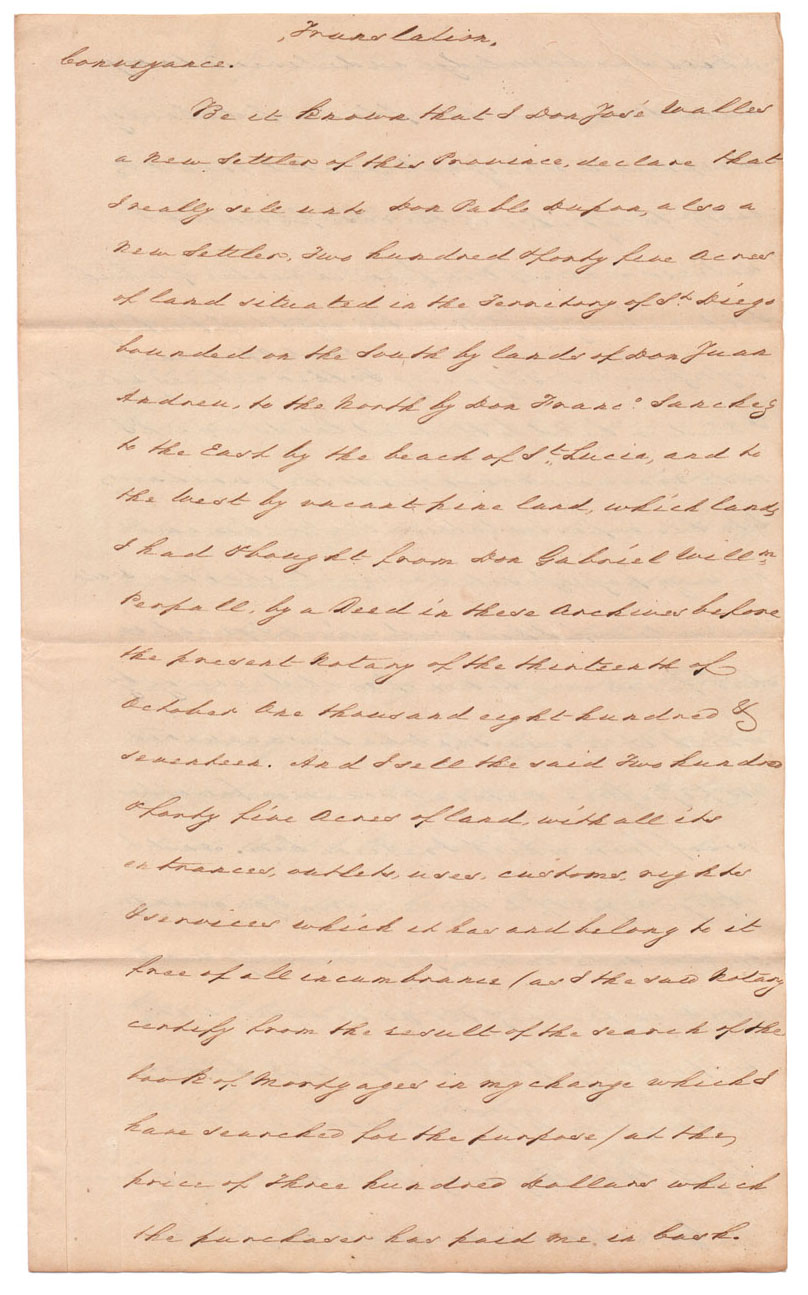 Translation,
Conveyance.
Be it known that I Don José Walles
a New Settler of this Province, declare that
I really sell unto Don Pablo Dupon, also a
New Settler, Two hundred & forty five Acres
of land situated in the Territory of St. Diego
bounded on the South by lands of Don Juan
Andreu, to the North by Don Franco. Sanchez
to the East by the beach of St. Lucia, and to
the West by vacant pine land, which lands
I had & bought from Don Gabriel Willm.
Perpall, by a Deed in these Archives before
the present Notary of the thirteenth of
October One thousand eight hundred &
seventeen. And I sell the said Two hundred
& forty five Acres of land, with all its
entrances, outlets, uses, customs, rights
& services which it has and belong to it
free of all incumbrance (as I the said Notary
certify from the result of the search of the
book of Mortgages in my charge which I
have searched for the purpose) at the
price of Three hundred Dollars which
the purchaser has paid me in Cash.